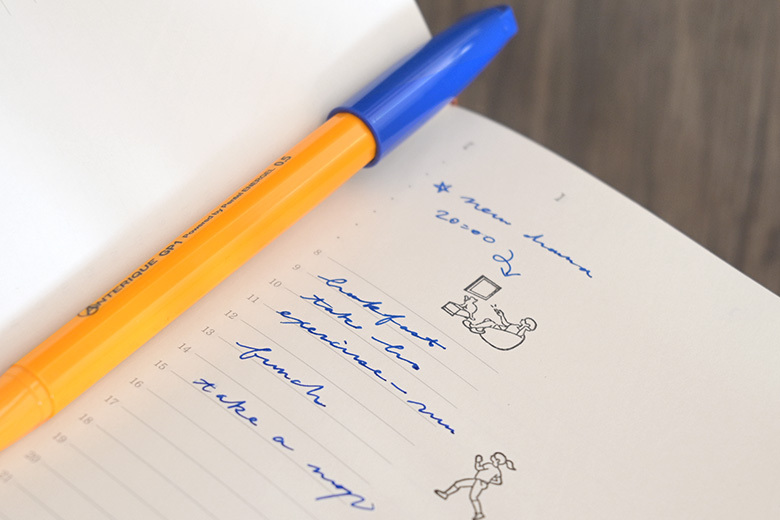 ANTERIQUE GP1 Powered by Pentel ENERGEL 0.5
☆ new drama
20:00
8
9
10 take
11 exercise - run
12
13 lunch
14
15 take a nap
16
17
18
19
20
21